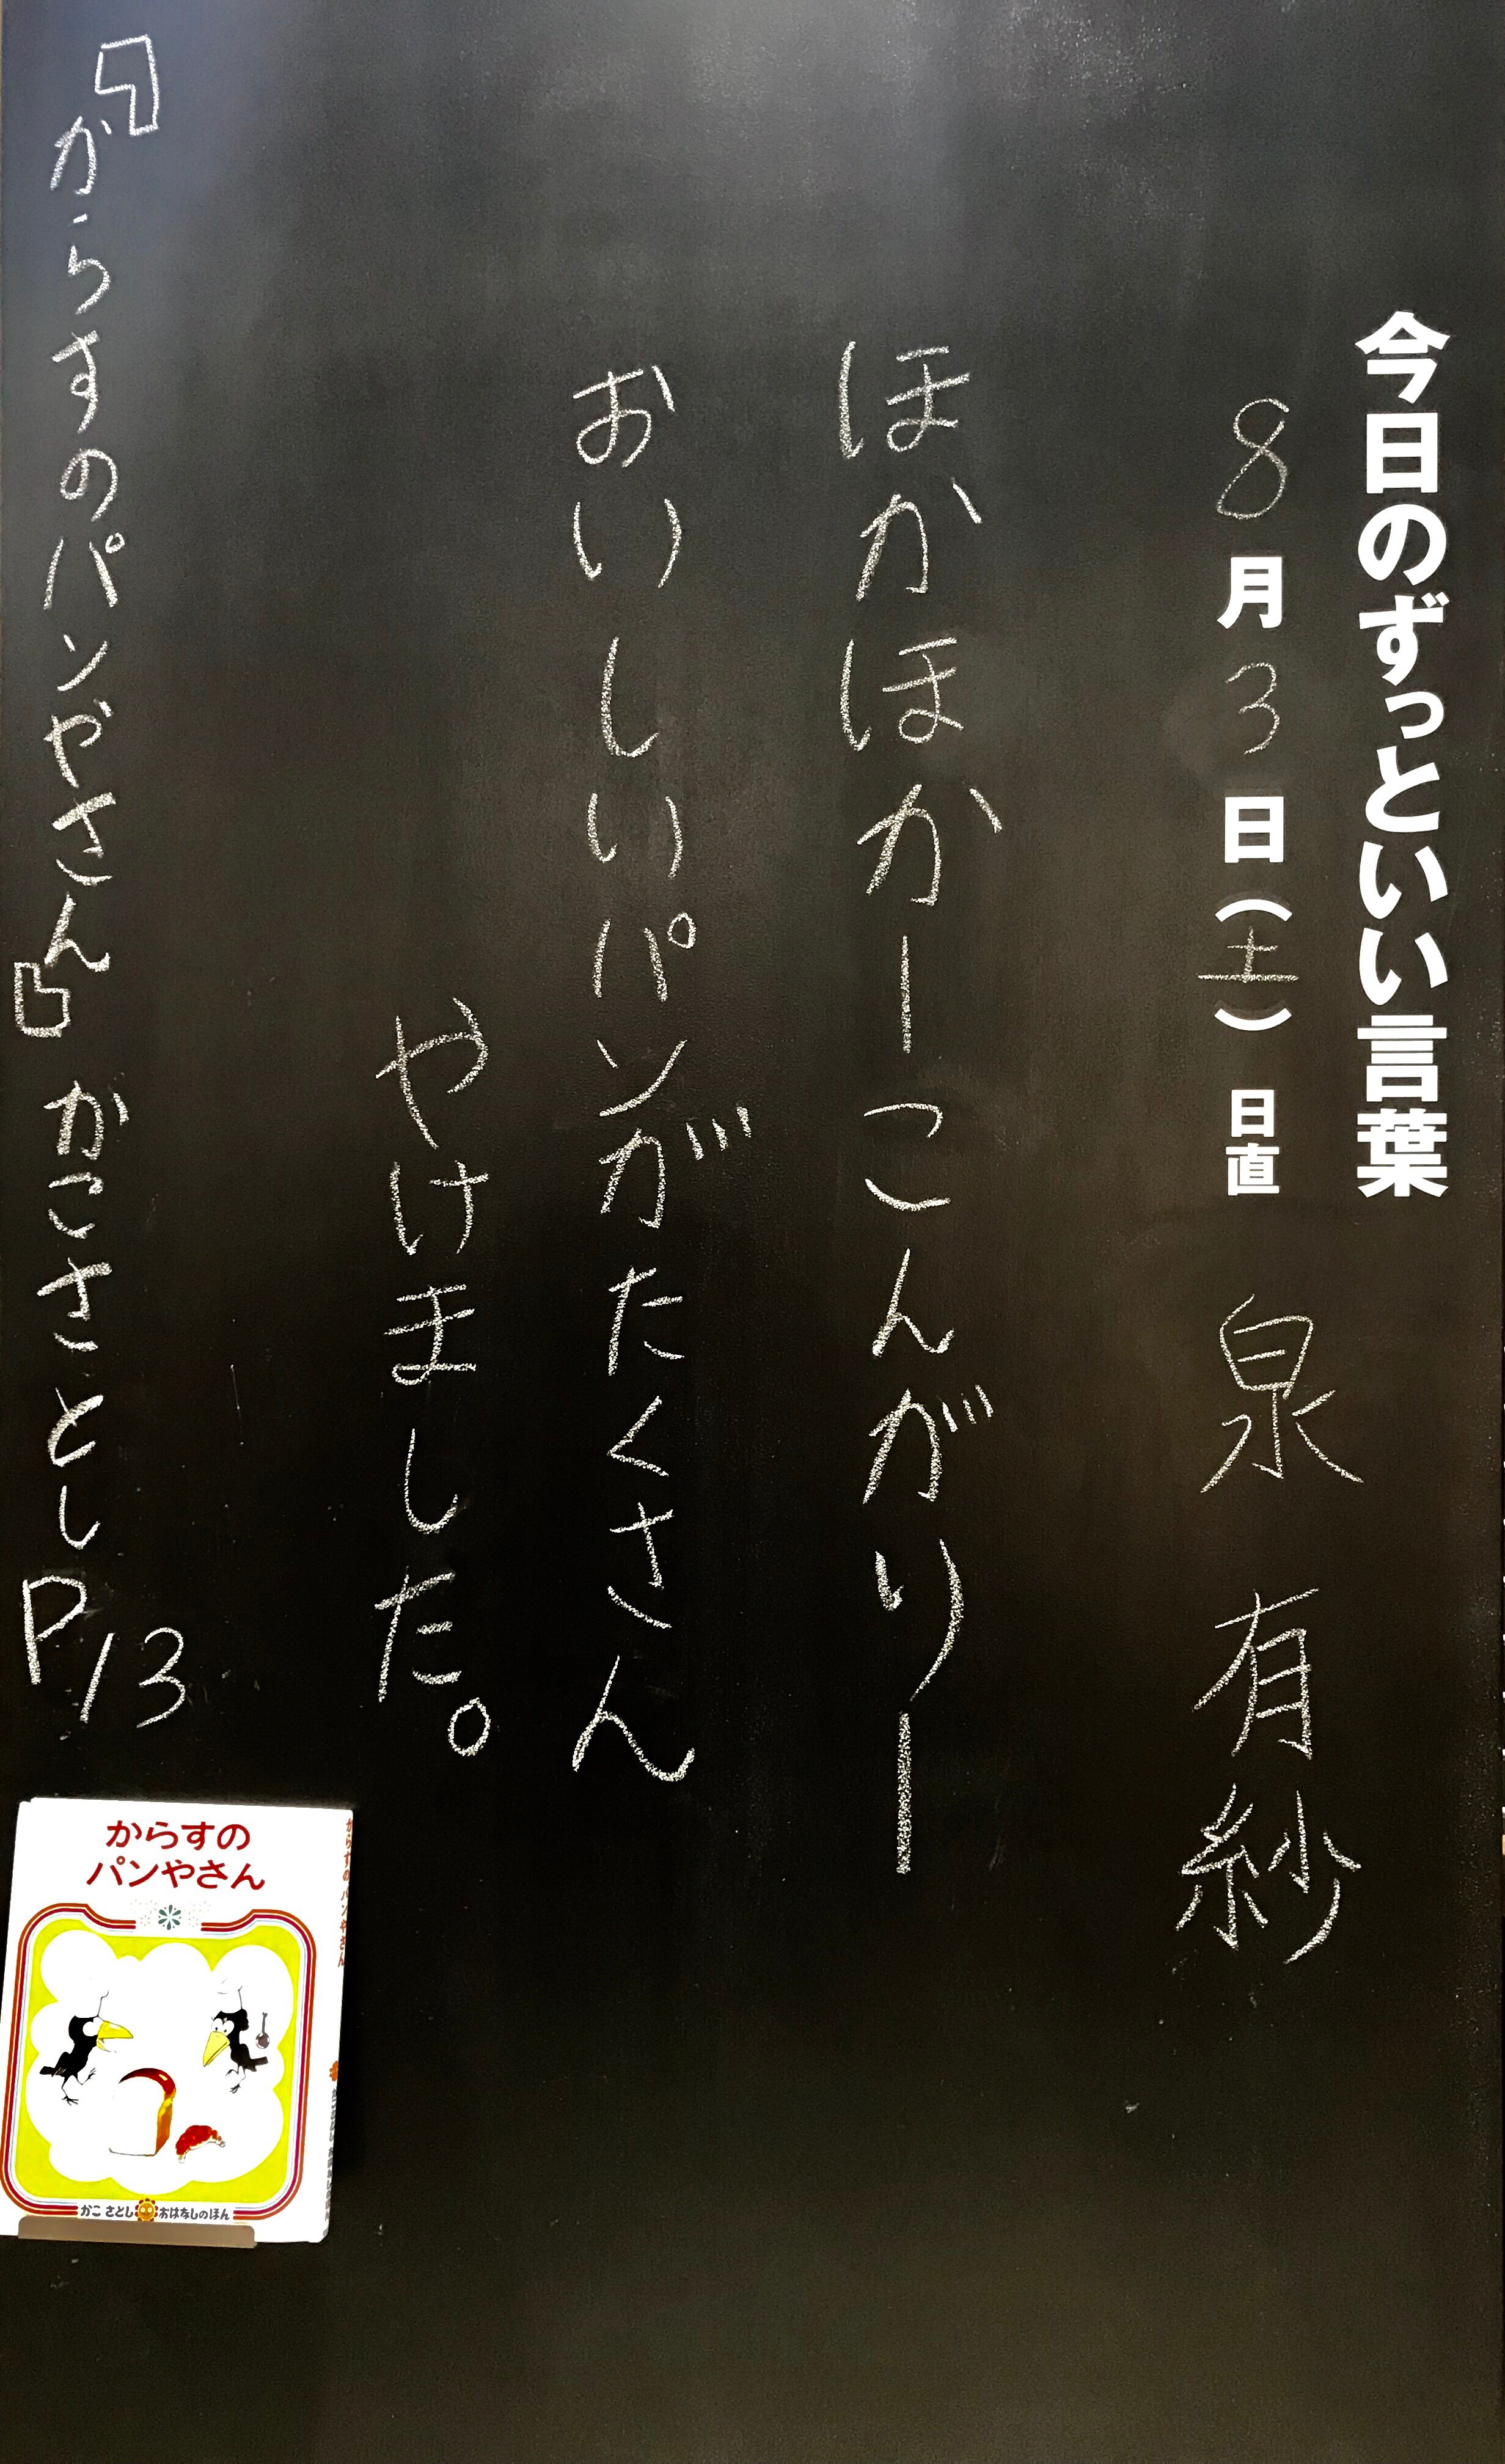 今日のずっといい言葉
8月3日(土) 日直 泉 有紗
ほかほかーこんがりー
おいしいパンがたくさん
やけました。
『からすのパンやさん』 かこさとし P13
からすの
パンやさん
かこ さとし おはなしのほん
からすのパンやさん